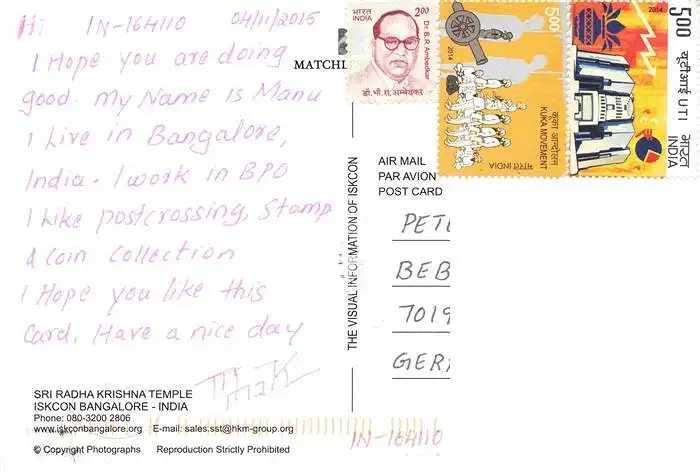 Hi IN-164110 04/11/2015
I Hope you are doing
good. my Name is Manu
I Live in Bangalore
India. I work in BPO
I Like postcrossing, Stamp
& Coin Collection
I Hope you like this
Card, Have a nice day
SRI RADHA KRISHNA TEMPLE
ISKCON BANGALORE - INDIA
Phone: 080-3200 2806
www.iskconbangalore.org E-mail: sales.sst@hkm-group.org
© Copyright Photographs Reproduction Strictly Prohibited
MATCHL
THE VISUAL INFORMATION OF ISKCON
भारत
INDIA
2.00
Dr. B. R. Ambedkar
डॉ. भी. रा. अम्बेडकर
5.00
2014
कूका आन्दोलन
KUKA MOVEMENT
भारत INDIA
5.00
2014
यूटीआई UTI
भारत
INDIA
AIR MAIL
PAR AVION
POST CARD
PET
BEB
7019
GER
IN-164110